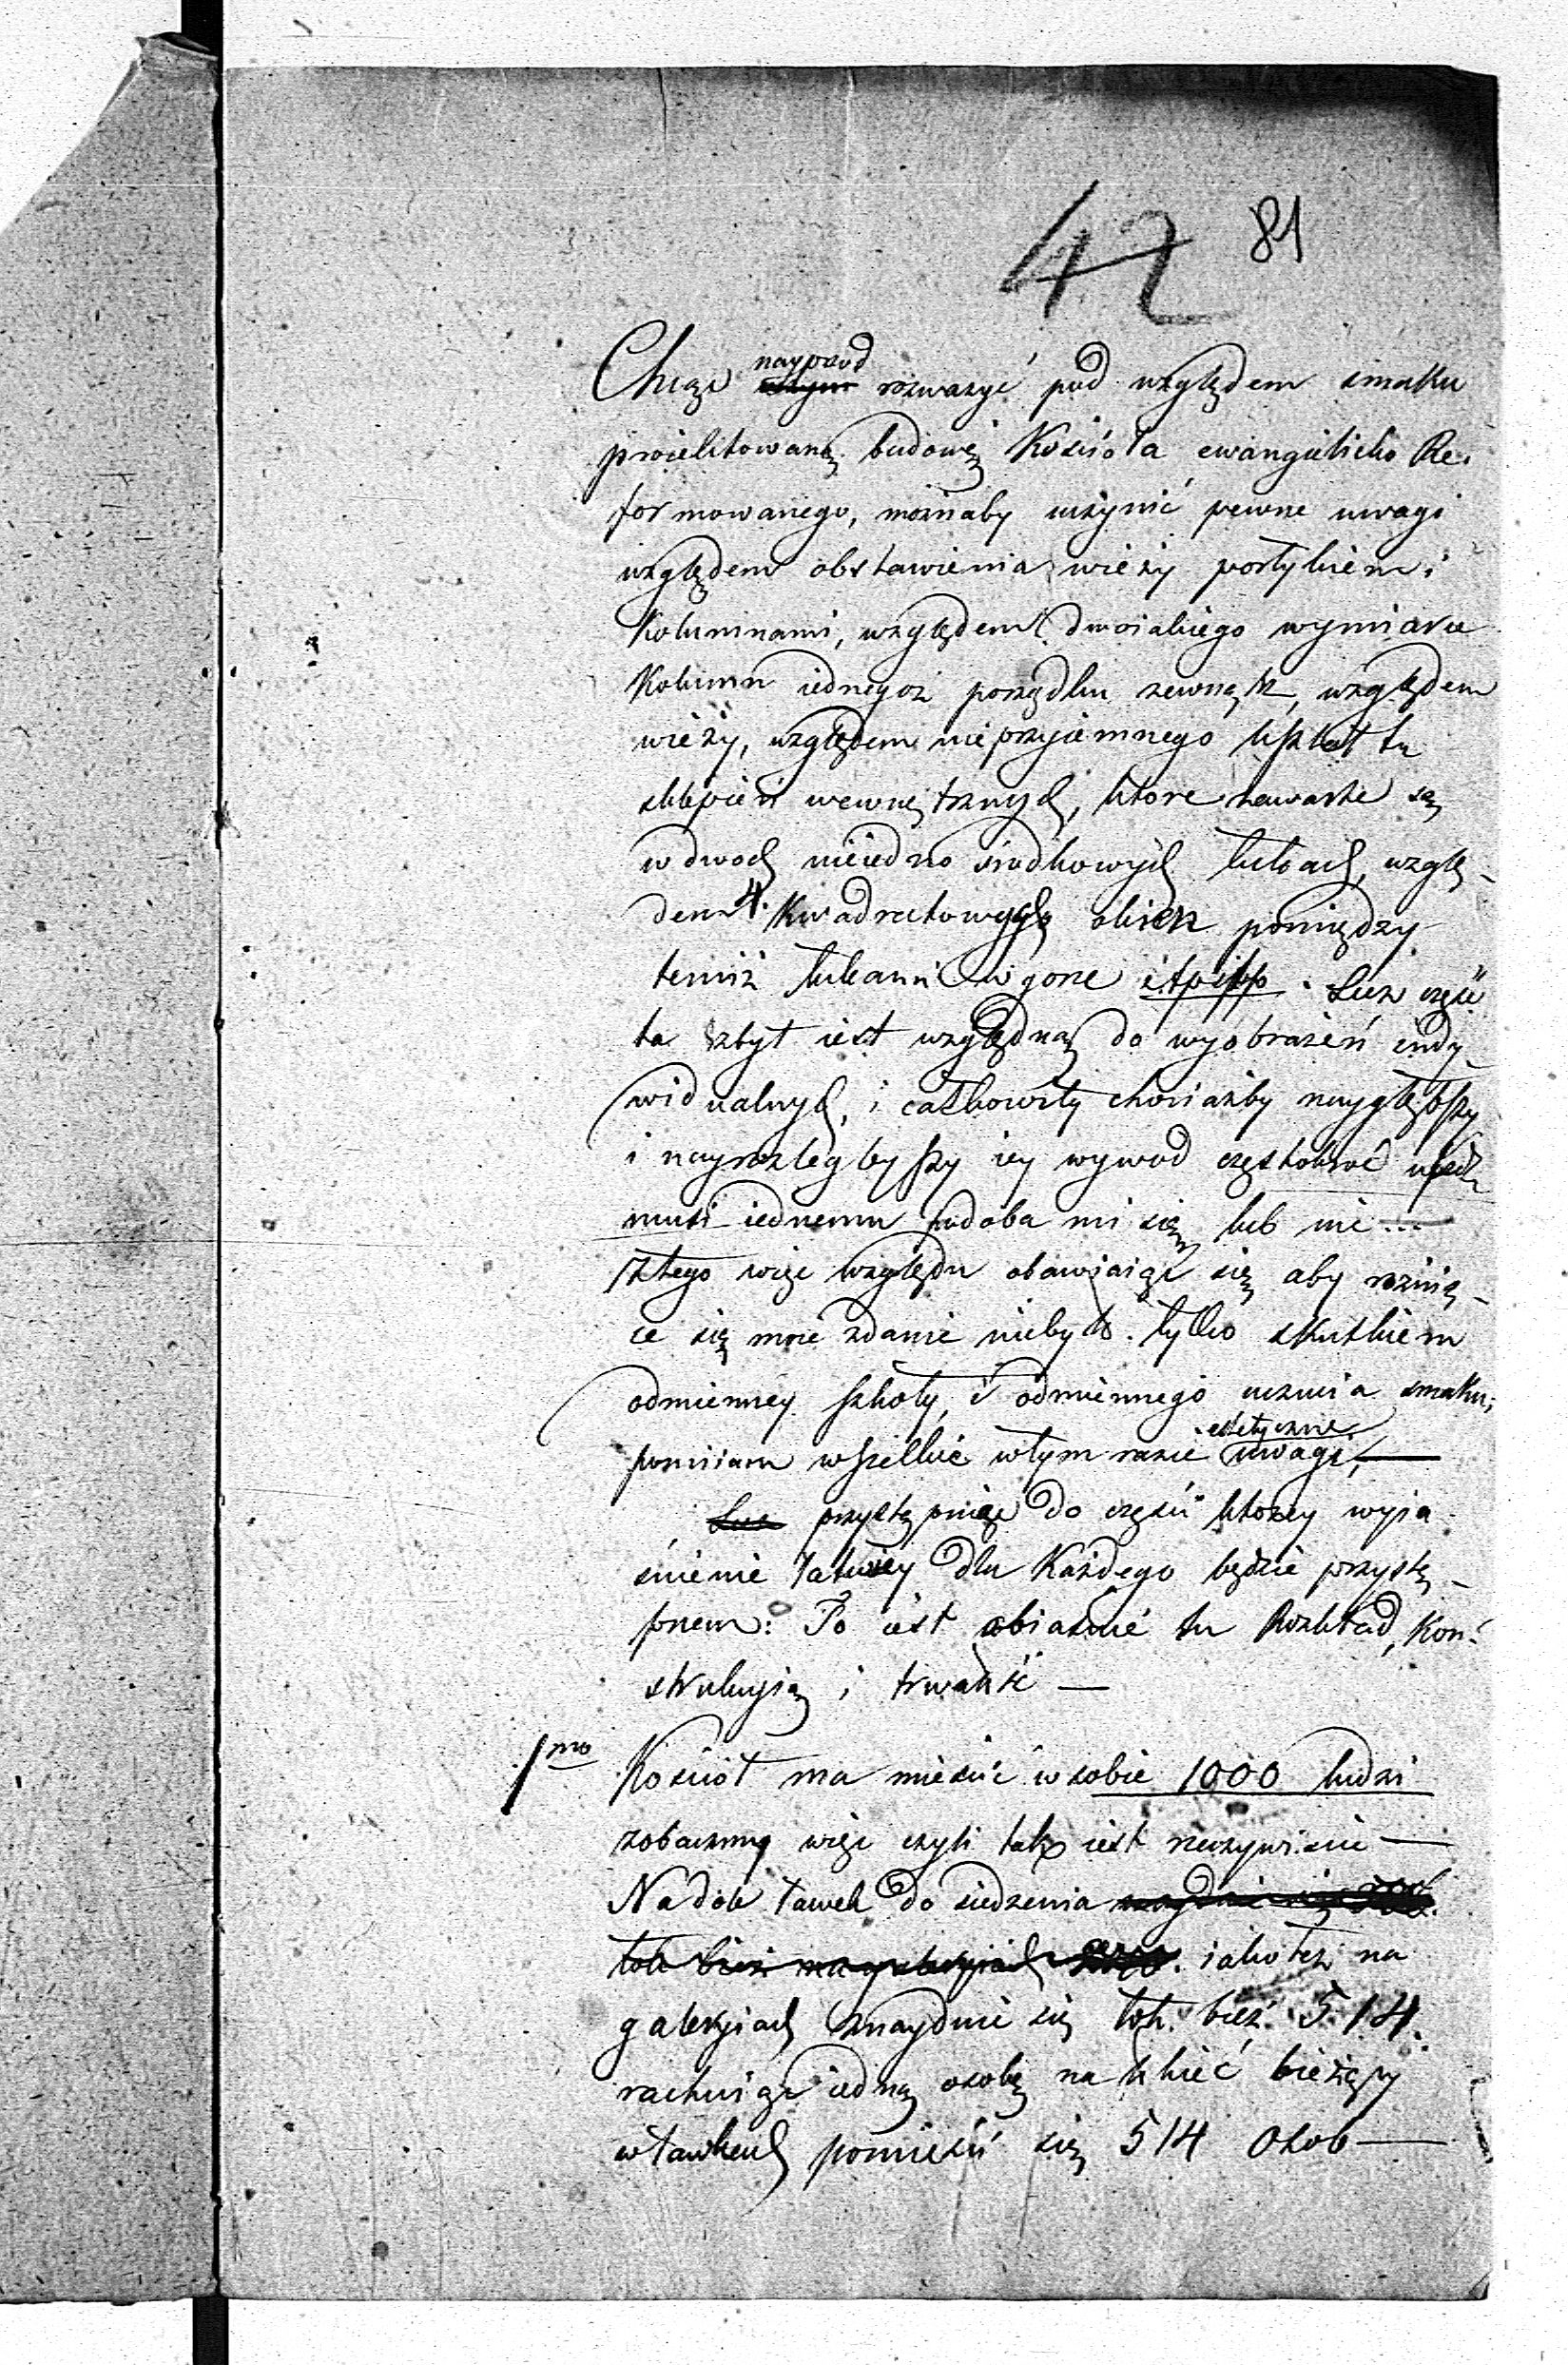 42 81
Chcąc nayprzod rozważyć pod względem smaku
proiektowaną budowę Kościoła ewangielicko Re-
formowanego, możnaby uczynić pewne uwagi
względem obstawienia wieży portykiem i
Kolumnami, względem dwoiakiego wymiaru
Kolumn iednegoż porządku zewnątrz, względem
wieży, względem nieprzyiemnego kształtu
sklepień wewnętrznych, ktore zawarte są
w dwoch nieiedno środkowych łukach, wzglę-
dem 4. Kwadratowych okien pomiędzy
temiż łukami w gorze itpitp. Lecz część
ta zbyt iest względną do wyobrażeń indy
widualnych, i całkowity chociażby naygłębszy
i nayrozlegleyszy iey wywod częstokroć
musi iednemu podoba mi się, lub nie...
Ztego więc względu obawiaiąc się aby rożnią-
ce się moie zdanie nie było tylko skutkiem
odmienney szkoły, i odmiennego uczucia smaku;
pomiiam wszelkie wtym razie estetyczne uwagi,—
przystępuię do części ktorey wyia
śnienie łatwiey dla Każdego będzie przystę-
pnem: To iest obiaśnić tu Rozkład, Kon-
strukcyią i trwałość —
1mo Kościoł ma mieścić w sobie 1000 ludzi
zobaczmy więc czyli tak iest rzeczywiście —
Na dole ławek do siedzenia
iako też na
galeryiach znayduie się łok. bież. 514.
rachuiąc iedną osobę na łokieć bieżący
w ławkach pomieści się 514 osob —